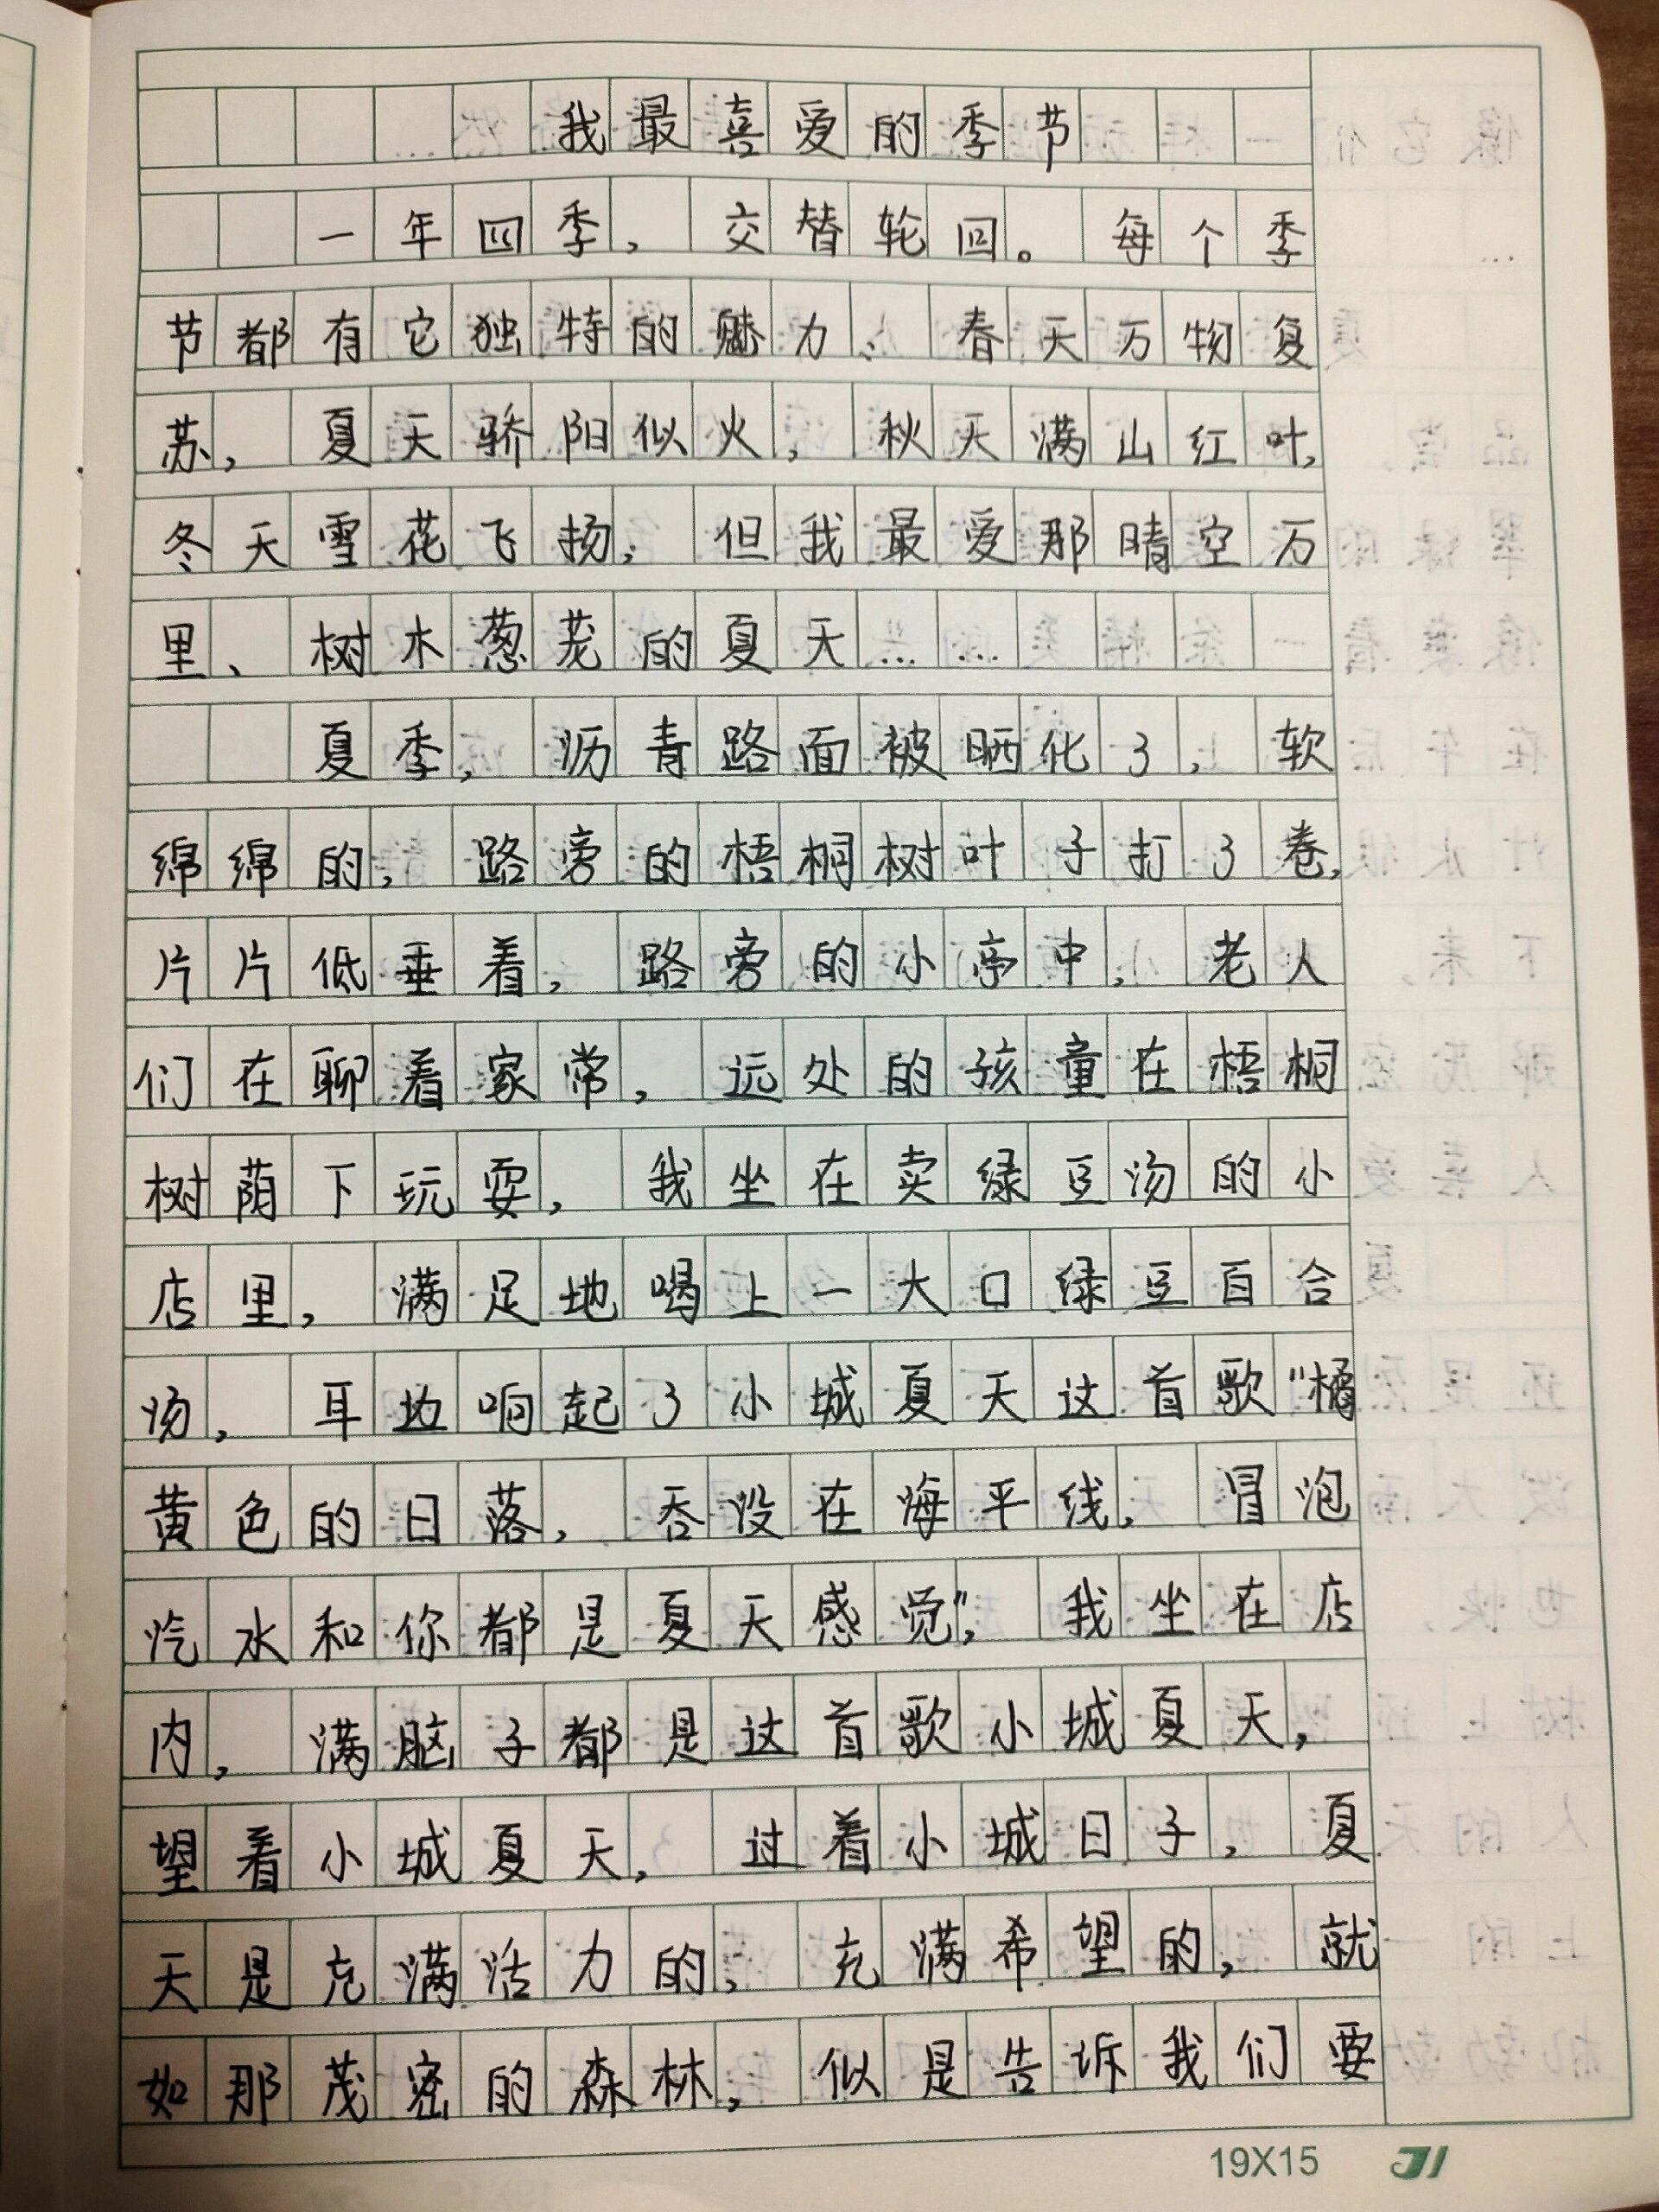 我最喜爱的季节
一年四季，交替轮回。每个季
节都有它独特的魅力、春天万物复
苏，夏天骄阳似火，秋天满山红叶，
冬天雪花飞扬，但我最爱那晴空万
里、树木葱茏的夏天……
夏季，沥青路面被晒化了，软
绵绵的，路旁的梧桐树叶子打了卷，
片片低垂着，路旁的小亭中，老人
们在聊着家常，远处的孩童在梧桐
树荫下玩耍，我坐在卖绿豆汤的小
店里，满足地喝上一大口绿豆百合
汤，耳边响起了小城夏天这首歌“橘
黄色的日落，吞没在海平线，冒泡
汽水和你都是夏天感觉”，我坐在店
内，满脑子都是这首歌小城夏天，
望着小城夏天，过着小城日子，夏
天是充满活力的，充满希望的，就
如那茂密的森林，似是告诉我们要
19X15